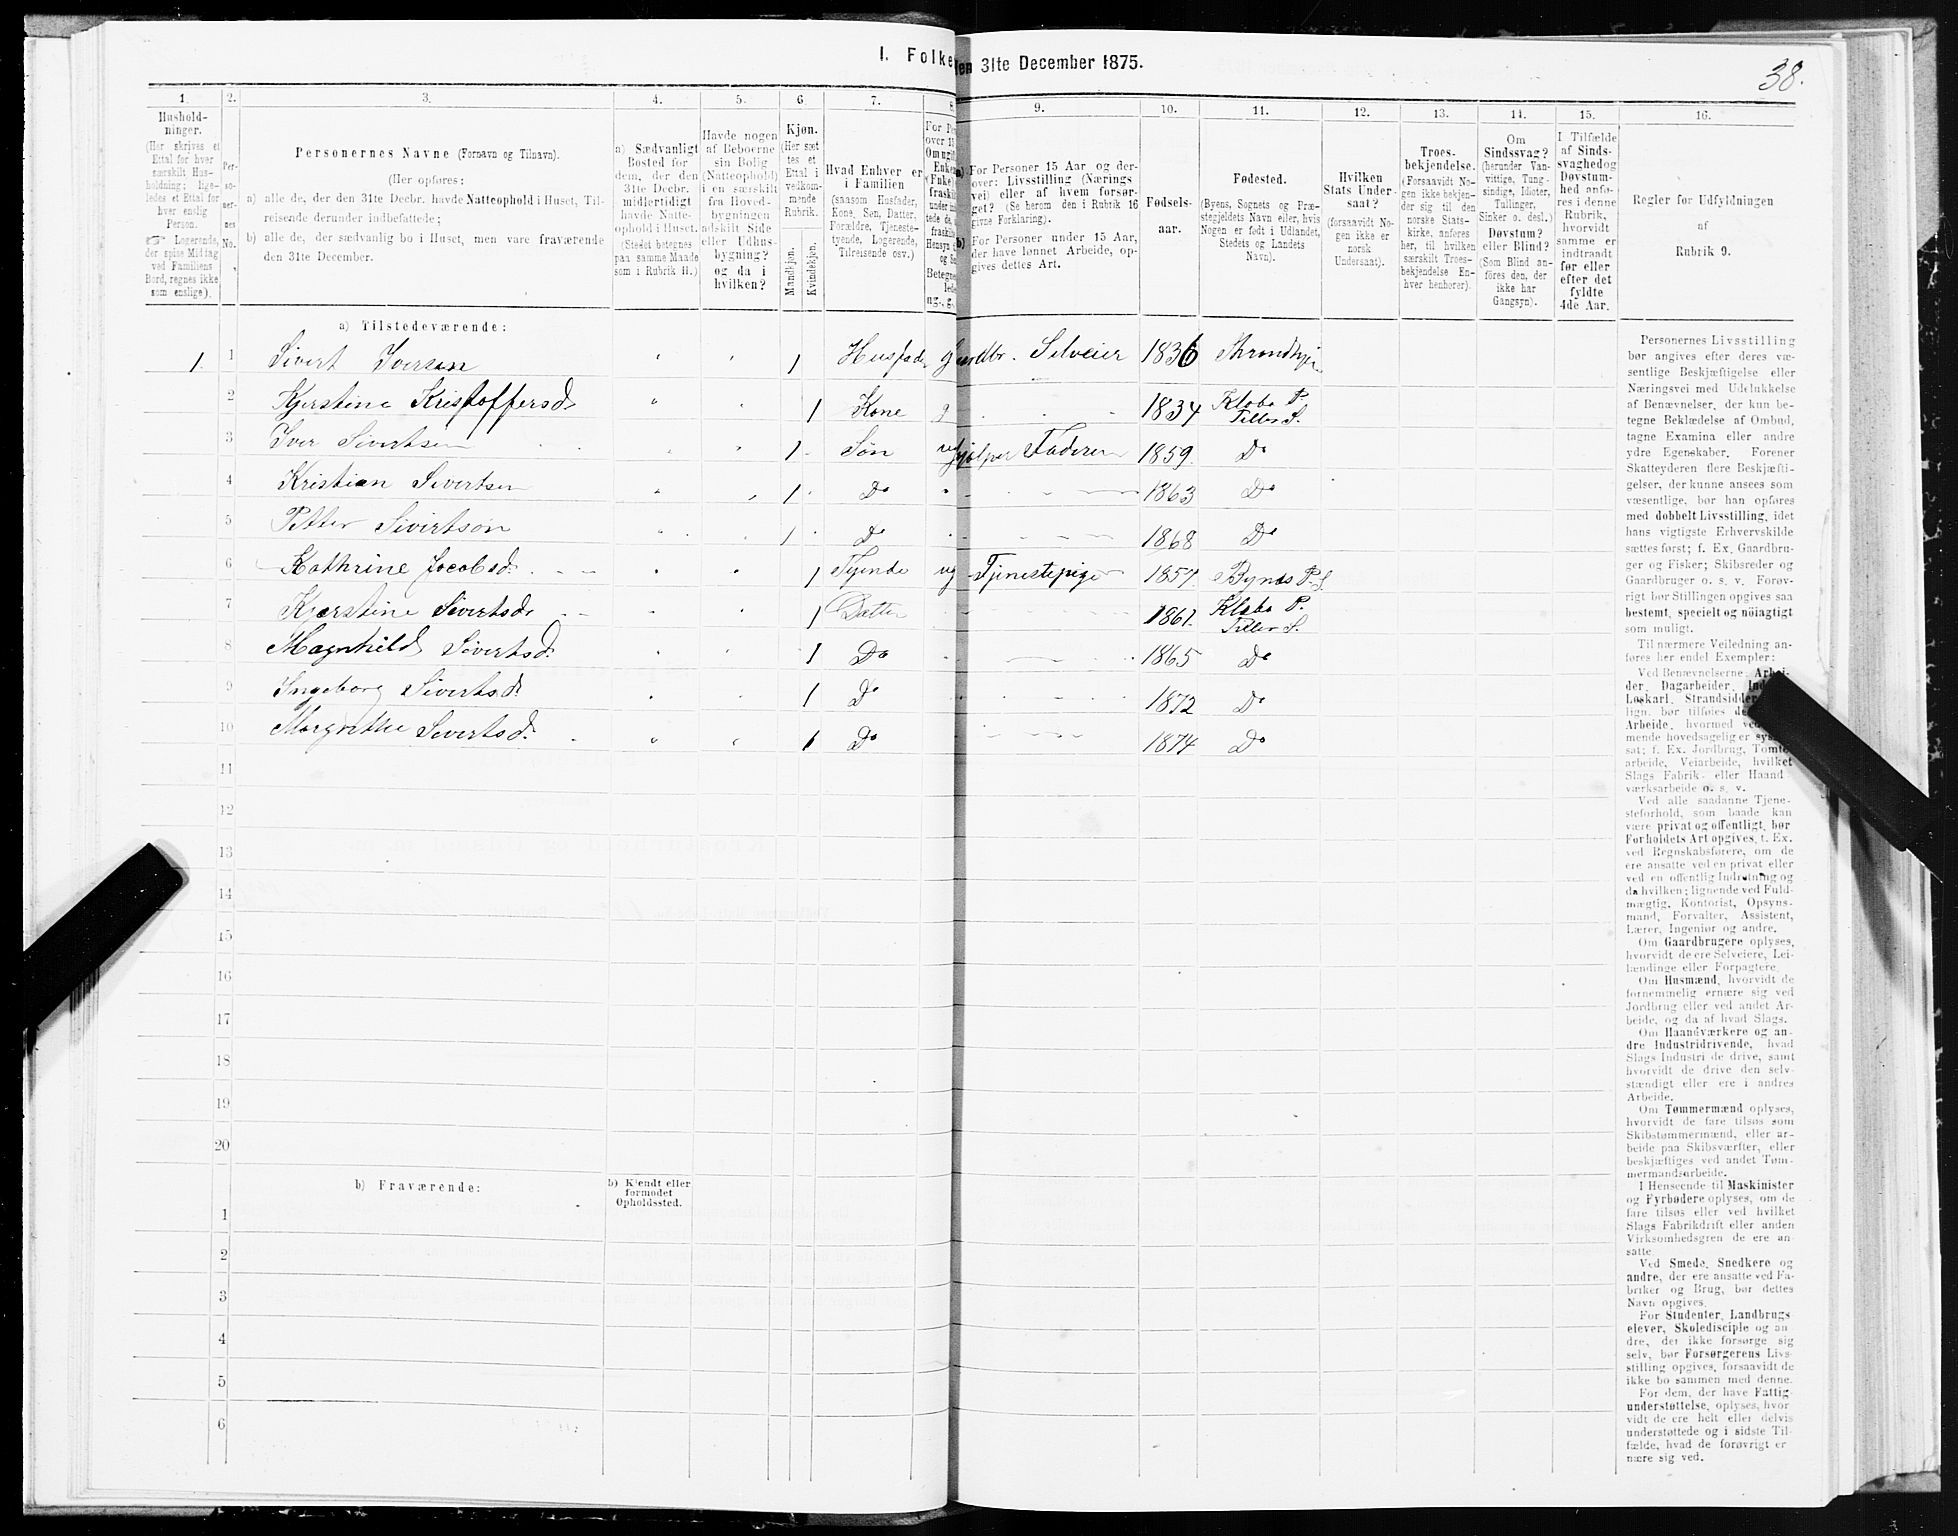 I. Folke
den 31te December 1875.
38.
1. 2. 3. 4. 5. 6. 7. 8 9. 10. 11. 12. 13. 14. 15. 16.
Hushold-
ninger.
(Her skrives et
Ettal for hver
særskilt Hus-
holdning; lige-
ledes et Ettal for
hver enslig
Person.
☞ Logerende,
der spise Middag
ved Familiens
Bord, regnes ikke
som enslige).
Per-
so-
ner-
nes
No.
Personernes Navne (Fornavn og Tilnavn).
(Her opføres:
a) alle de, der den 31te Decbr. havde Natteophold i Huset, Til-
reisende derunder indbefattede;
b) alle de, der sædvanlig bo i Huset, men vare fraværende
den 31te December.
a) Sædvanligt
Bosted for
dem, der den
31te Decbr.
midlertidigt
havde Natte-
ophold i Huset.
(Stedet betegnes
paa samme Maade
som i Rubrik 11.)
Havde nogen
af Beboerne
sin Bolig
(Natteophold)
i en særskilt
fra Hoved-
bygningen
adskilt Side
eller Udhus-
bygning?
og da i
hvilken?
Kjøn.
(Her sæt
tes et
Ettal i
vedkom-
mende
Rubrik.
Mandkjøn.
Kvindekjøn.
Hvad Enhver er
i Familien
(saasom Husfader,
Kone, Søn, Datter,
Forældre, Tjeneste-
tyende, Logerende,
Tilreisende osv.)
For Personer 15 Aar og der-
over: Livsstilling (Nærings
vei) eller af hvem forsør-
get? (Se herom den i Rubrik 16
givne Forklaring).
For Personer under 15 Aar,
der have lønnet Arbeide, op-
gives dettes Art.
Fødsels-
aar.
Fødested.
(Byens, Sognets og Præ-
stegjeldets Navn eller, hvis
Nogen er født i Udlandet,
Stedets og Landets
Navn).
Hvilken
Stats Under-
saat?
(forsaavidt No-
gen ikke er
norsk
Undersaat).
Troes-
bekjendelse.
(Forsaavidt No-
gen ikke bekjen-
der sig til den
norske Stats-
kirke, anføres
her, til hvilken
særskilt Troes-
bekjendelse En-
hver henhører).
Om
Sindssvag?
(herunder Van-
vittige, Tung-
sindige, Idioter,
Tullinger,
Sinker o. desl.)
Døvstum?
eller Blind?
(Som Blind an-
føres den, der
ikke har
Gangsyn).
I Tilfælde
af Sinds-
svaghed og
Døvstum-
hed anfø-
res i denne
Rubrik,
hvorvidt
samme er
indtraadt
før eller
efter det
fyldte
4de Aar.
Regler for Udfyldningen
af
Rubrik 9.
a) Tilstedeværende:
1. 1 Sivert Iversen " " 1 Husfad. Gaardbr. Selveier 1836 Strandbygd
2 Kjerstine Kristoffersd. " " 1 Kone g 1834 Klæbo P. Tiller S.
3 Iver Sivertsen " 1 Søn ug hjælper Faderen 1859. Do
4 Kristian Sivertsen " " 1 Do 1863 Do
5 Petter Sivertson " 1 Do 1868 Do
6 Kathrine Jacobsd. " " 1 Tjende ug Tjenestepige 1857 Bynæs P. S.
7 Kjerstine Sivertsd. " " 1 Datter 1861. Klæbo P. Tiller S.
8 Magnhild Sivertsd. " " 1 Do 1865 Do
9 Ingeborg Sivertsd. " " 1 Do 1872 Do
10 Margrethe Sivertsd. " " 1 Do 1874 Do
11
12
13
14
15
16
17
18
19
20
b) Fraværende:
b) Kjendt eller
formodet
Opholdssted.
1
2
3
4
5
6
Personernes Livsstilling
bør angives efter deres væ-
sentlige Beskjæftigelse eller
Næringsvei med Udelukkelse
af Benævnelser, der kun be-
tegne Beklædelse af Ombud,
tagne Examina eller andre
ydre Egenskaber. Forener
Skatteyderen flere Beskjæfti-
gelser, der kunne ansees som
væsentlige, bør han opføres
med dobbelt Livsstilling, idet
hans vigtigste Erhvervskilde
sættes først; f. Ex. Gaardbru-
ger og Fisker; Skibsreder og
Gaardbruger o. s. v. Forøv-
rigt bør Stillingen opgives saa
bestemt, specielt og nöiagtigt
som muligt.
Til nærmere Veiledning an-
føres her endel Exempler:
Ved Benævnelserne: Arbei-
der, Dagarbeider,
Løskarl, Strandsidder
lign. bør tilføies
Arbeide, hvormed
mende hovedsagelig er
sat; f. Ex. Jordbrug, Tomte-
arbeide, Veiarbeide, hvilket
Slags Fabrik- eller Haand-
værksarbeide o. s. v.
Ved alle saadanne Tjene-
steforhold, som baade kan
være privat og offentligt, bør
Forholdets Art opgives, f. Ex.
ved Regnskabsførere, om de
ere ansatte ved en privat eller
ved en offentlig Indretning og
da hvilken; lignende ved Fuld-
mægtig, Kontorist, Opsyns-
mand, Forvalter, Assistent,
Lærer, Ingeniør og andre.
Om Gaardbrugere oplyses,
hvorvidt de ere Selveiere, Lei-
lændinge eller Forpagtere.
Om Husmænd, hvorvidt de
fornemmelig ernære sig ved
Jordbrug eller ved andet Ar-
beide, og da af hvad Slags.
Om Haandværkere og an-
dre Industridrivende, hvad
Slags Industri de drive, samt
hvorvidt de drive den selv-
stændigt eller ere i andres
Arbeide.
Om Tømmermænd oplyses,
hvorvidt de fare tilsøs som
Skibstømmermænd, eller ar-
beide paa Skibsværfter, eller
beskjæftiges ved andet Tøm-
mermandsarbeide.
I Henseende til Maskinister
og Fyrbødere oplyses, om de
fare tilsøs eller ved hvilket
Slags Fabrikdrift eller anden
Virksomhedsgren de ere an-
satte
Ved Smede, Snedkere og
andre, der ere ansatte ved Fa-
briker og Brug, bør dettes
Navn opgives.
For Studenter, Landbrugs-
elever, Skoledisciple og an-
dre, der ikke forsørge sig
selv, bør Forsørgerens Livs-
stilling opgives, forsaavidt de
ikke bo sammen med denne.
For dem, der have Fattig-
understøttelse, oplyses, hvor-
vidt de ere helt eller delvis
understøttede og i sidste Til-
fælde, hvad de forøvrigt er-
nære sig ved.